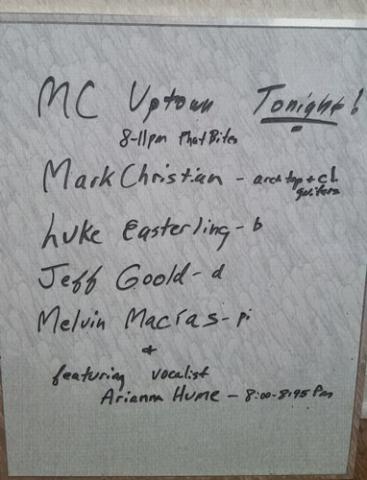 MC Uptown Tonight!
8-11pm Phat Bites
Mark Christian - archtop + cl
guitars
Luke Easterling - b
Jeff Goold - d
Melvin Macías - pi
+
featuring vocalist
Arianna Hume - 8:00-8:45 Pm